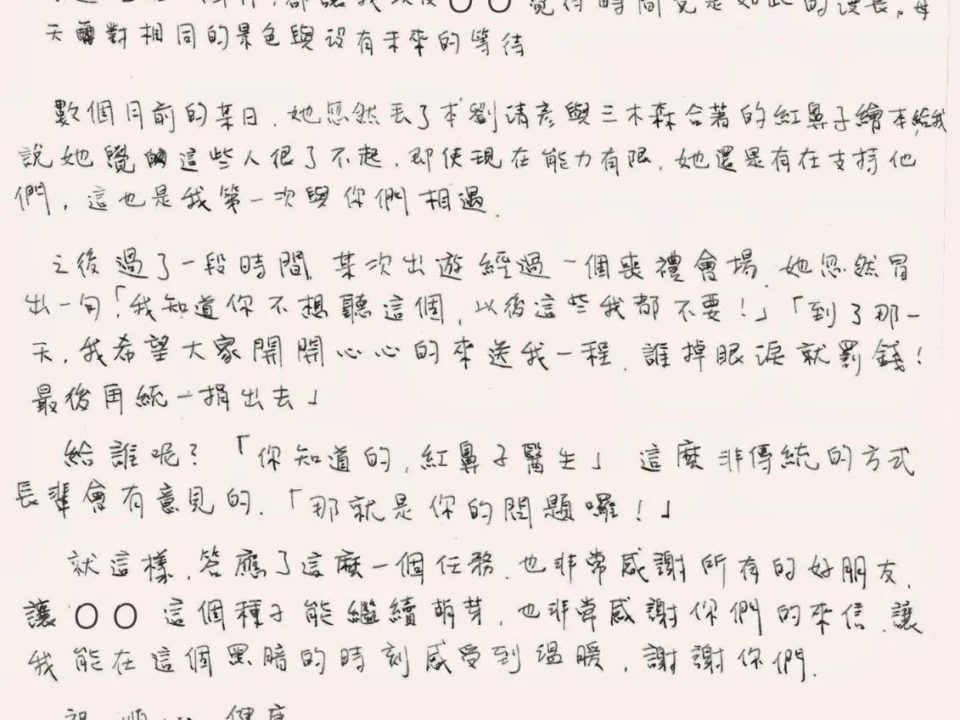 覺得時間竟是如此的漫長。每
天面對相同的景色與沒有未來的等待
數個月前的某日,她忽然丟了本劉清彥與三木森合著的紅鼻子繪本給我
說她覺的這些人很了不起,即使現在能力有限,她還是有在支持他
們,這也是我第一次與你們相遇.
之後過了一段時間,某次出遊經過一個喪禮會場,她忽然冒
出一句「我知道你不想聽這個,以後這些我都不要!」「到了那一
天,我希望大家開開心心的來送我一程,誰掉眼淚就罰錢!
最後再統一捐出去」
給誰呢?「你知道的,紅鼻子醫生」這麼非傳統的方式
長輩會有意見的.「那就是你的問題囉!」
就這樣,答應了這麼一個任務,也非常感謝所有的好朋友,
讓〇〇這個種子能繼續萌芽,也非常感謝你們的來信,讓
我能在這個黑暗的時刻感受到溫暖,謝謝你們.